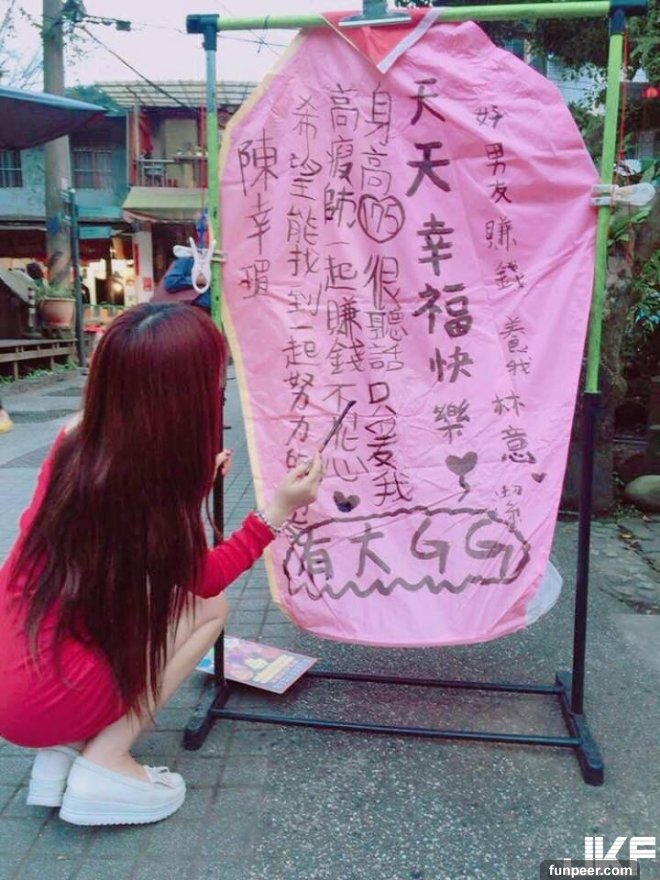 好男友賺錢養我林意
天天幸福快樂
身高175很聽話只愛我
高瘦帥一起賺錢不花心
希望能找到一起努力的
陳幸
有大GG
JKF
funpeer.com